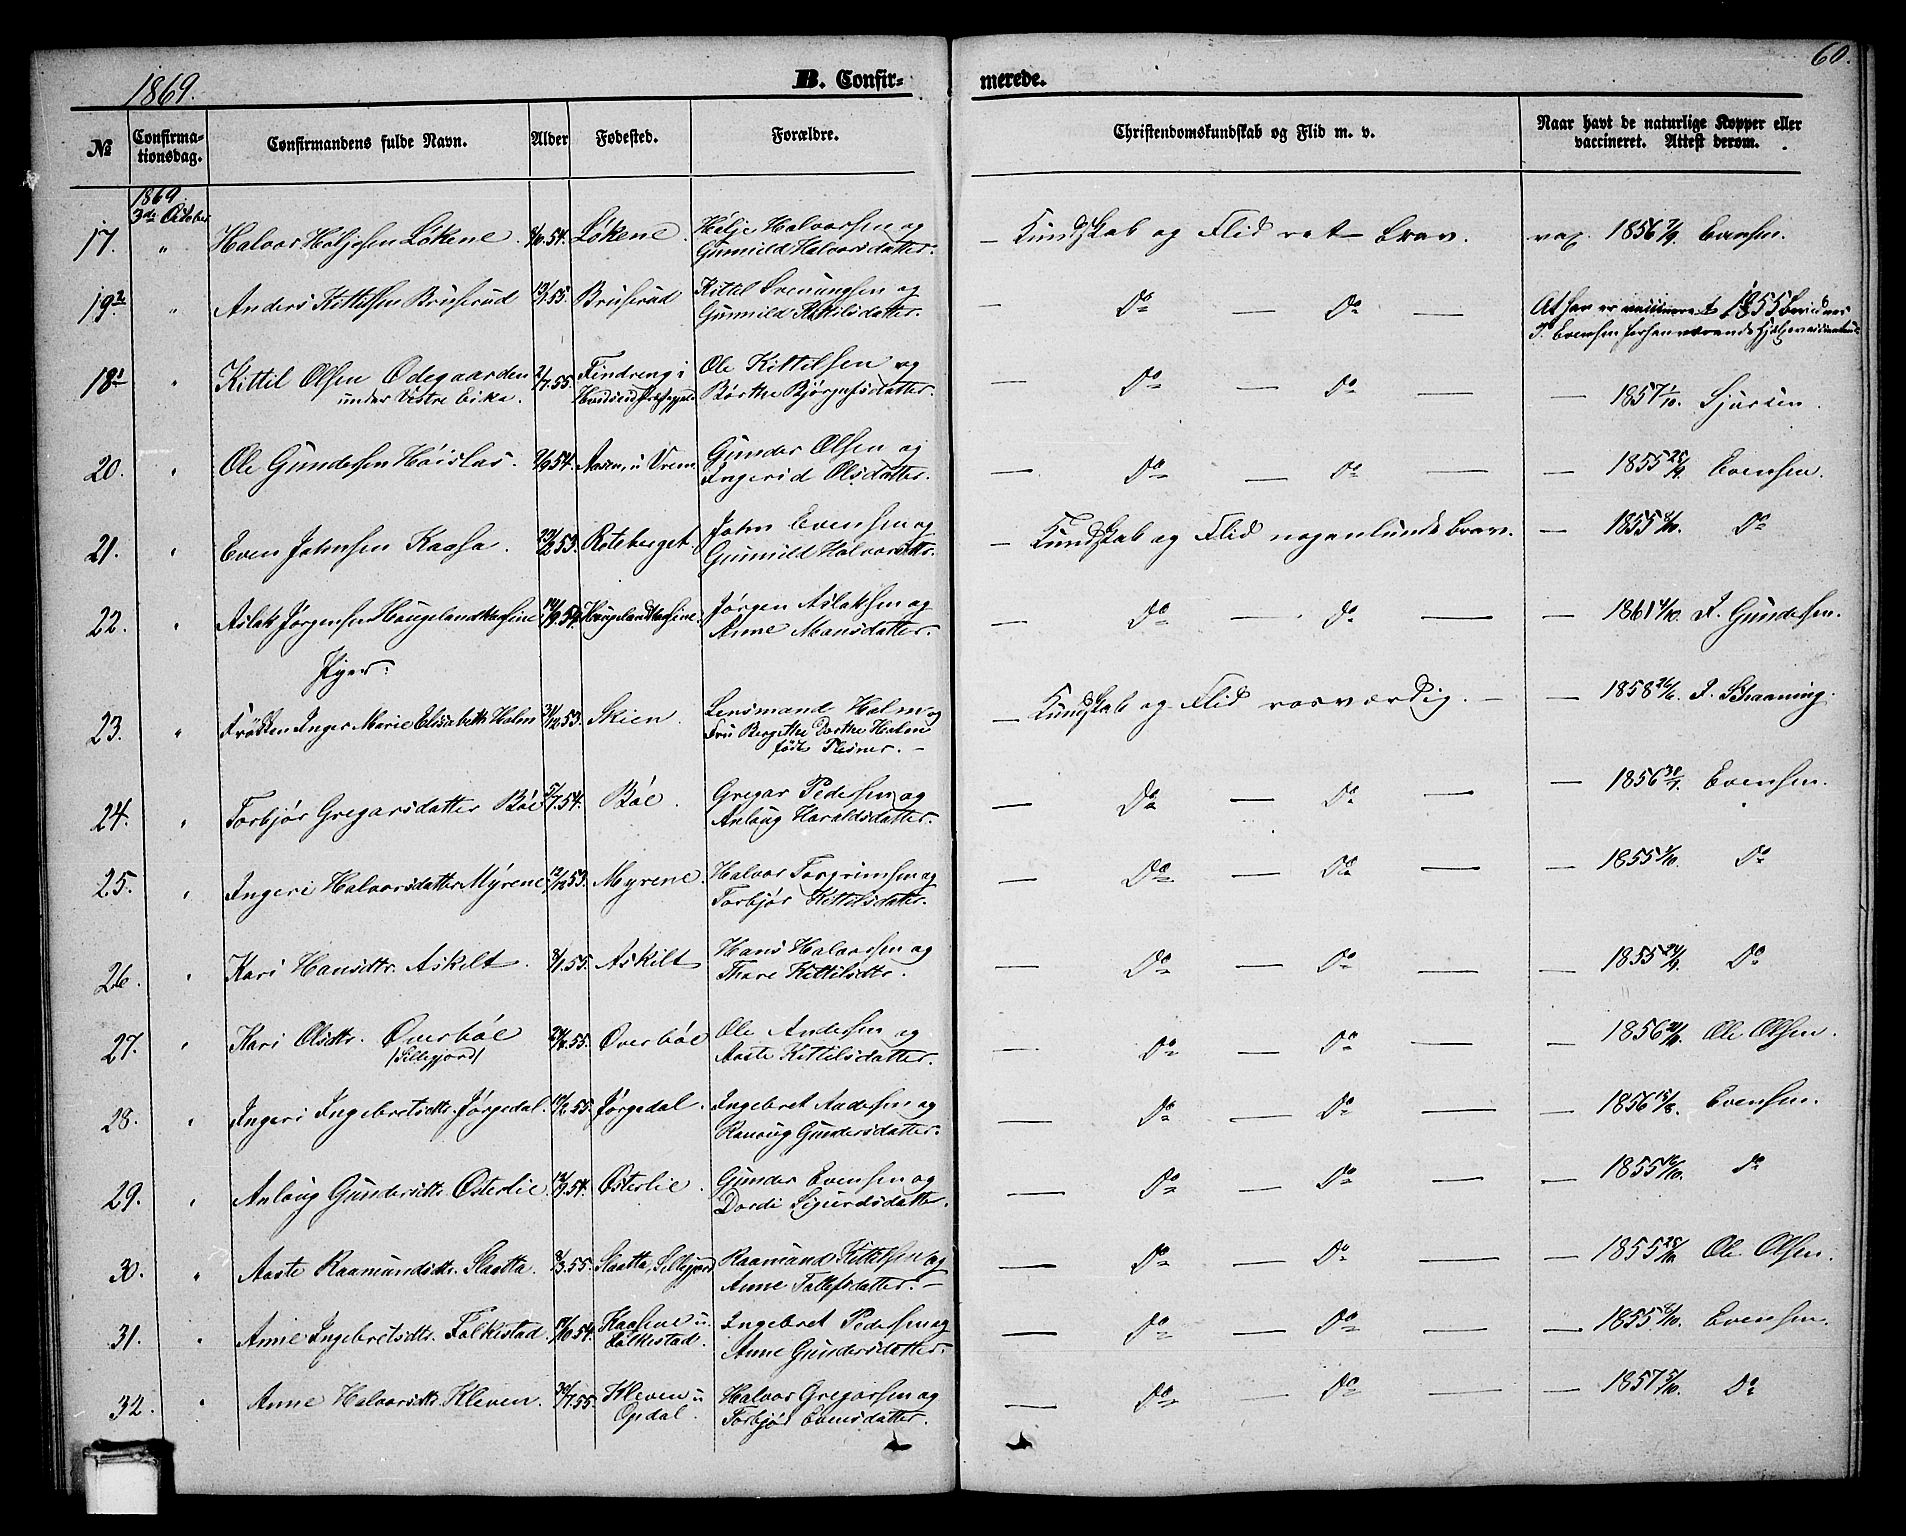 1869.
B. Confir-
merede.
60.
No
Confirma-
tionsdag.
Confirmandens fulde Navn.
Alder
Fødested.
Forældre.
Christendomskundskab og Flid m. v.
Naar havt de naturlige Kopper eller
vaccineret. Attest derom.
1869
3de October
17. " Halvor Holjesen Løkene. 54. Løkene. Holje Halvorsen og
Gunnild Halvorsdatter.
— Kundskab og Flid ret brav. vax. 1856 7/9. Evensen.
19.2 " Anders Kittelsen Bruserud 55. Bruserud Kittil Svenungsen og
Gunnild Kittilsdatter.
— Do — Do — At han er vaccineret 1855 bevidnes
T. Evensen forhenværende Hjelpevaccinateur
18.1 " Kittil Olsen Ødegaarden 2/7.55. Findreng i Ole Kittilsen og
under Vestre Erika. Børthe Bjørgufsdatter.
— Do Do — — 1857 1/10. Sjursen.
20. " Ole Gundersen Høislas. 9/9.54. Aasen, u Vrem Gunder Olsen og
Ingerid Olsdatter.
— Do — Do — — 1855 25/9. Evensen.
21. " Even Johnsen Kaasa. 53. Roteberget John Evensen og
Gunnild Halvorsdtr.
— Kundskab og Flid nogenlunde brav. — 1855 /10. Do
22. " Aslak Jørgensen Haugelandkaasene 14/9.54. Haugelandkaasene. Jørgen Aslaksen og
Anne Monsdatter.
— Do — Do — 1861 4/10. F. Gundersen.
Piger.
23. " Frøken Inger Marie Elisabeth Holm 31/12.53. Skien. Lensmand Holm og
Fru Bergithe Dorthe Holm
født Plesner. —
— Kundskab og Flid rosværdig. — — 1858 26/6. F. Schaaning.
24. " Torbjør Gregarsdatter Bøe 7/7.54. Bøe. Gregar Pedersen og
Anlaug Haraldsdatter.
— Do — Do — — 1856 Evensen.
25. " Ingeri Halvorsdatter Myrene 12/12.53. Myrene. Halvor Torgrimsen og
Torbjør Kittilsdatter.
— Do — Do — — 1855 /10. Do
26. " Kari Hansdtr. Askilt. 8/1.55. Askilt Hans Halvorsen og
Thore Kittilsdtr.
— Do — Do — — 1855 24/9. Do
27. " Kari Olsdtr. Øverbøe 55. Øverbøe Ole Andersen og
(Sillejord) Aaste Kittilsdatter.
— Do — Do — 1856 21/10. Ole Olsen.
28. " Ingeri Ingebretsdtr. Jørgedal. 55. Jørgedal. Ingebret Andersen og
Ranoug Gundersdatter.
— Do — Do — — 1856 15/8. Evensen.
29. " Anlaug Gundersdtr. Østerlie. 12/9.54. Østerlie. Gunder Evensen og
Dordi Sigurdsdatter.
— Do — Do — — 1855 16/10. Do
30. " Aaste Raamundsdtr. Slaatta. 8/3.55. Slaatta, Sillejord Raamund Kittilsen og
Anne Tallefsdatter. —
— Do — Do — — 1855 25/10. Ole Olsen.
31. " Anne Ingebretsdtr. Folkestad. 17/10.54. Kaasene u. Ingebret Pedersen og
Folkestad. Anne Gundersdatter.
— Do — Do — — 1855 /10. Evensen.
32. " Anne Halvorsdtr. Kleven. 30/7.55. Kleven u Halvor Gregarsen og
Opdal. Torbjør Evensdatter.
— Do — Do — — 1857 5/10. Do